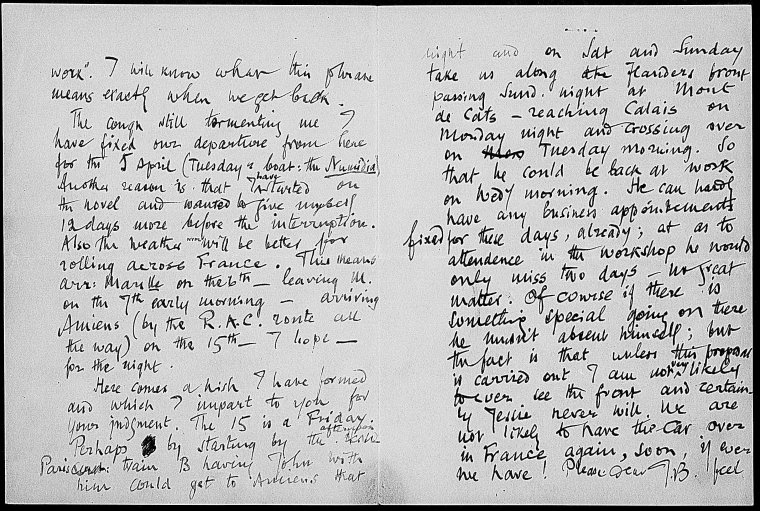 work". I will know what this phrase
means exactly when we get back.
The cough still tormenting me I
have fixed our departure from here
for the 5 April (Tuesday's boat: the Numidia)
Another reason is that I have started on
the novel and wanted to give myself
12 days more before the interruption.
Also the weather will be better for
rolling across France. This means
arr: Marslle on the 6th – leaving M.
on the 7th early morning – arriving
Amiens (by the R.A.C. route all
the way) on the 15th – I hope –
for the night.
Here comes a wish I have formed
and which I impart to you for
your judgment. The 15 is a Friday.
Perhaps by starting by the afternoon
Paris train B having John with
him could get to Amiens that
night and on Sat and Sunday
take us along the Flanders front
passing Sund. night at Mont
de Cats – reaching Calais on
Monday night and crossing over
on Tuesday morning. So
that he could be back at work
on Wedy morning. He can hardly
have any business appointements
fixed for these days, already; at as to
attendence in the workshop he would
only miss two days – no great
matter. Of course if there is
something special going on there
he musn't absent himself; but
the fact is that unless this proposal
is carried out I am not very likely
to ever see the front and certain-
ly Jessie never will. We are
not likely to have the car over
in France again, soon, if ever
we have! Please dear J.B. feel